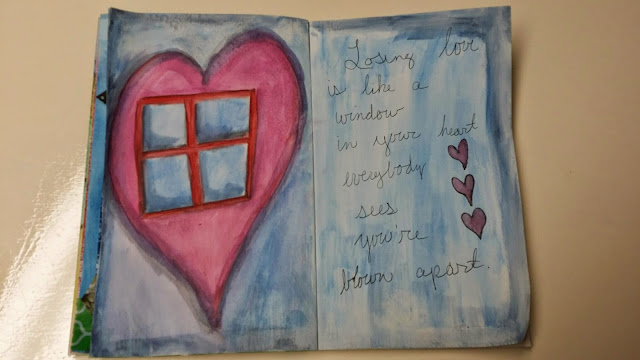 Losing love
is like a
window
in your heart
everybody
sees
you're
blown apart.